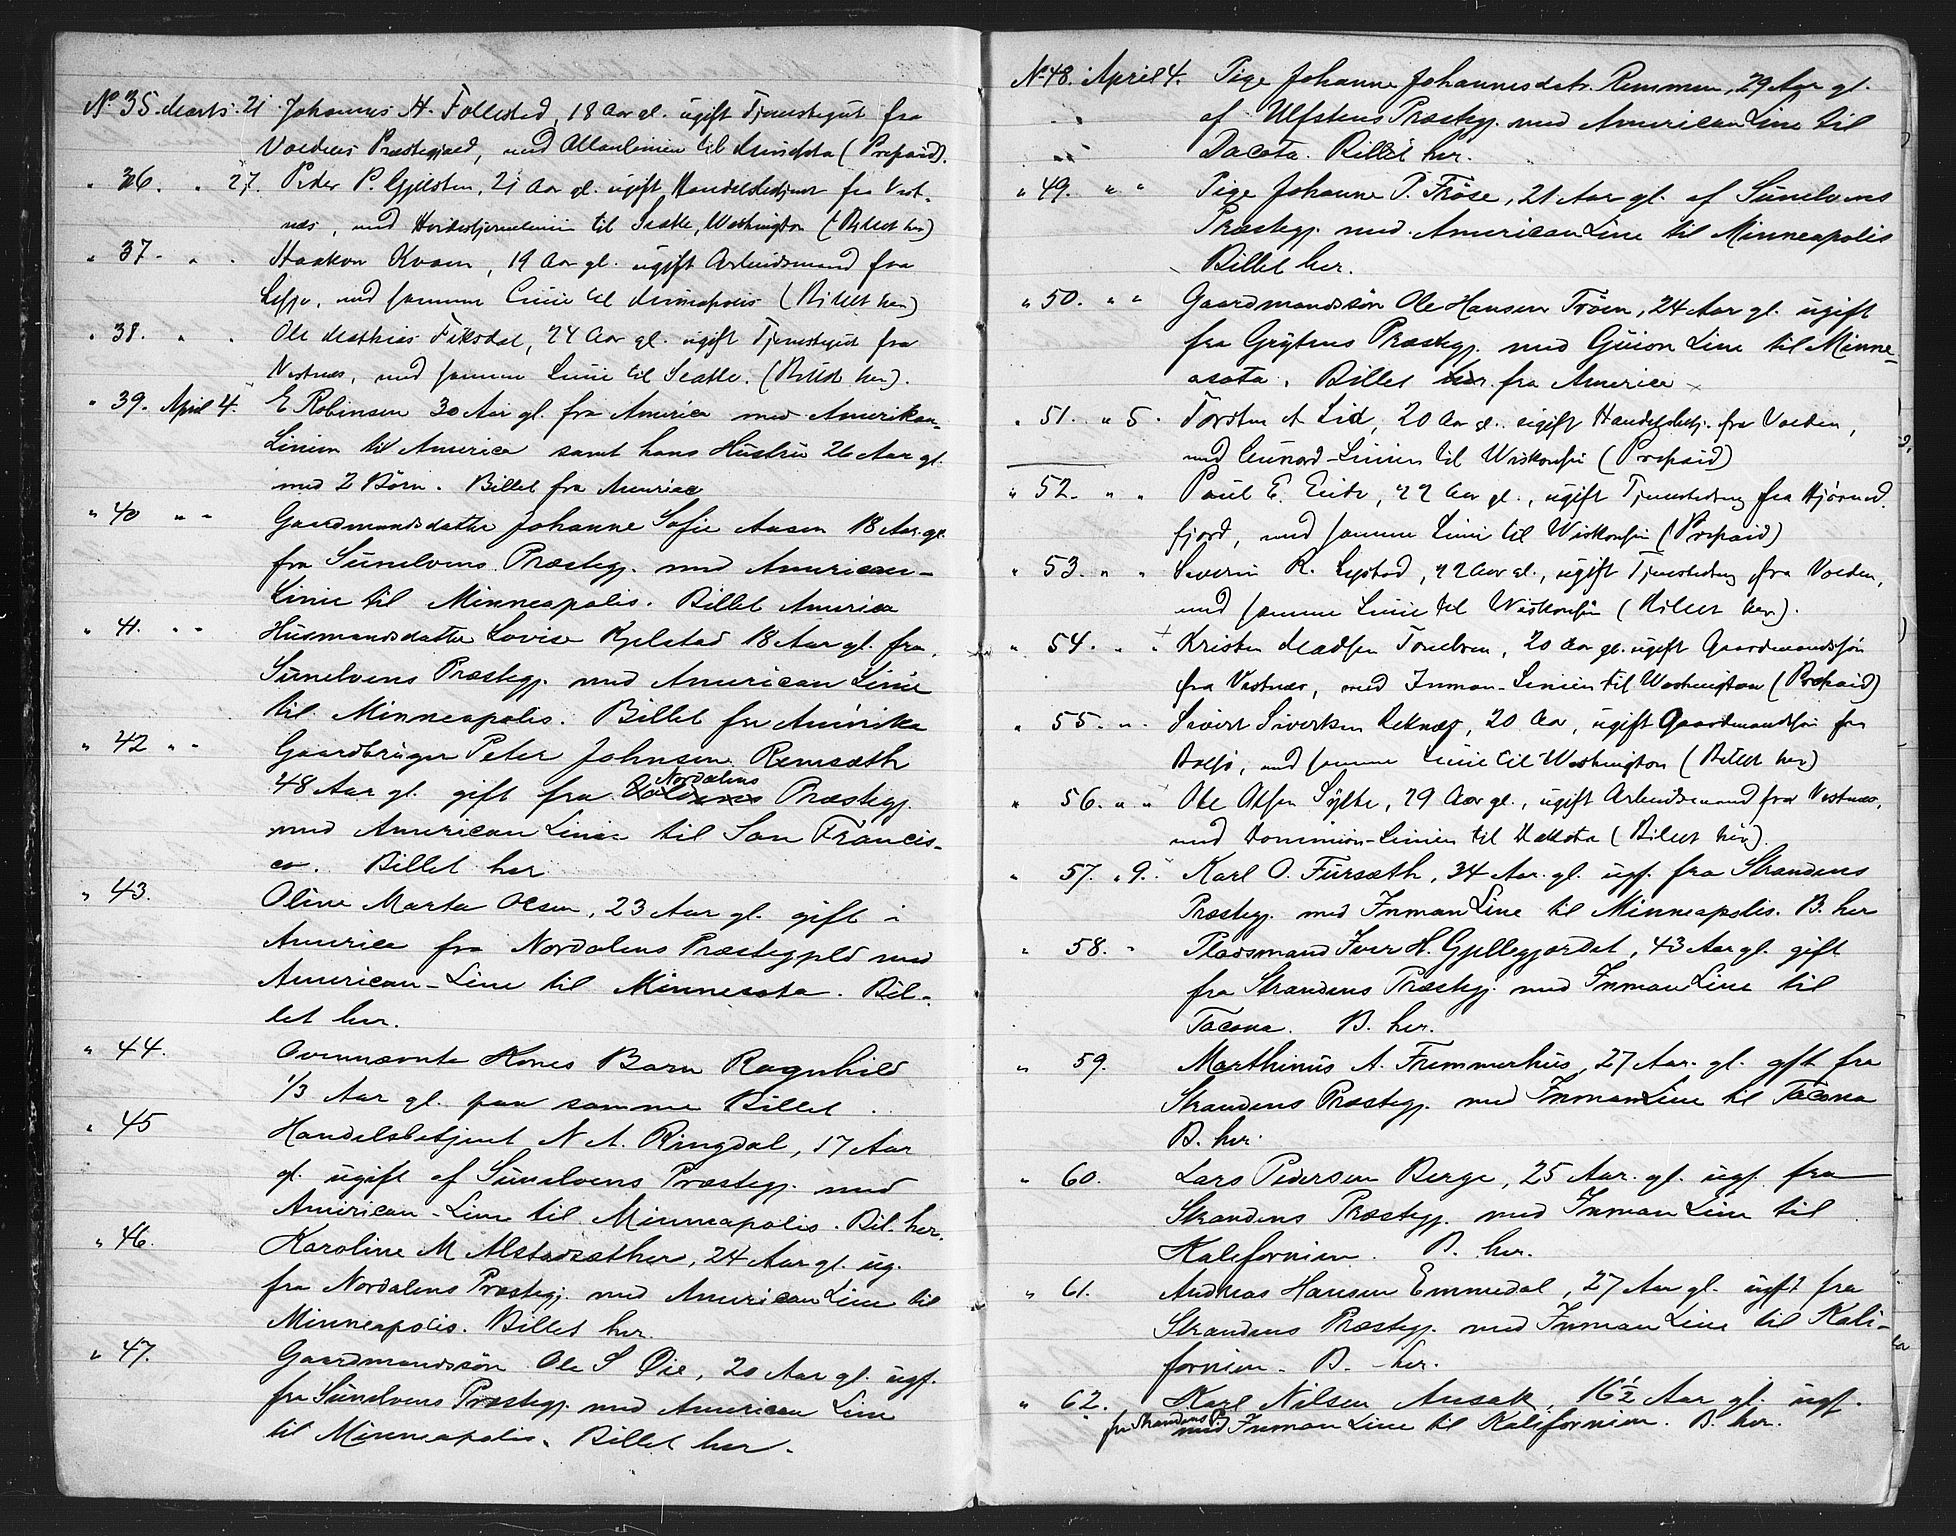 No 35. Marts. 21 Johannes H. Follestad, 18 Aar gl. ugift Tjenestegut fra
Voldens Præstegjæld, med Allanlinien til Minnesota (Prepaid).
" 36. " 27. Peder P. Gjelsten, 21 Aar gl. ugift Handelsbetjent fra Vest-
næs, med Hvidestjernelinien til Seattle, Washington (Billet her)
" 37. " " Haakon Kvam, 19 Aar gl. ugift Arbeidsmand fra
med samme Linie til Minneapolis (Billet her)
" 38. " " Ole Mathias Fiksdal, 24 Aar gl. ugift Tjenestegut fra
Vestnæs, med samme Linie til Seattle. (Billet her).
" 39. April 4. E Robinsen 30 Aar gl. fra America med Amerikan-
Linien til America samt hans Hustru 26 Aar gl.
med 2 Børn. Billet fra America
" 40 " " Gaardmandsdatter Johanne Sofie Aasen 18 Aar gl.
fra Sunelvens Præstegj. med American-
Linie til Minneapolis. Billet America
" 41. " " Husmandsdatter Lovise Kjelstad 18 Aar gl. fra
Sunelvens Præstegj. med American Linie
til Minneapolis. Billet fra Amerika
" 42 " " Gaardbruger Peter Johnsen Remsæth
48 Aar gl. gift fra Nordalens Præstegj.
med American Linie til San Francis-
co. Billet her
" 43. Oline Marta Olsen, 23 Aar gl. gift i
America fra Nordalens Præstegjeld med
American-Line til Minnesota. Bil-
let her.
" 44. Ovennævnte Kones Barn Ragnhild
1/3 Aar gl. paa samme Billet.
" 45 Handelsbetjent N A. Ringdal, 17 Aar
gl. ugift af Sunelvens Præstegj. med
American-Line til Minneapolis. Bil. her.
" 46. Karoline M Alstadsæther, 24 Aar gl. ug.
fra Nordalens Præstegj. med American Line til
Minneapolis. Billet her.
" 47. Gaardmandssøn Ole S Øie, 20 Aar gl. ugf.
fra Sunelvens Præstegj. med American Line
til Minneapolis. Billet her.
No 48. April 4. Pige Johanne Johannesdatr. Remmen, 29 Aar gl.
af Ulfstens Præstegj. med American Line til
Dacota. Billet her.
" 49. " " Pige Johanne P. Frøse, 21 Aar gl. af Sunelvens
Præstegj. med American Line til Minneapolis
Billet her.
" 50. " " Gaardmandssøn Ole Hansen Trøen, 24 Aar gl. ugift
fra Grytens Præstegj. med Guion Line til Minne-
asota. Billet her fra America
" 51. " 5. Torsten A Lid, 20 Aar gl. ugift Handelsbetj. fra Volden,
med Cunard-Linien til Wiskonsin (Prepaid)
" 52. " " Paul E. 22 Aar gl., ugift Tjenestedreng fra Hjørund-
fjord, med samme Linie til Wiskonsin (Prepaid)
" 53. " " Severin R. Systad, 22 Aar gl., ugift Tjenestedreng fra Volden,
med samme Linie til Wiskonsin (Billet her).
" 54. " " Kristen Madsen 20 Aar gl. ugift Gaardmandssøn
fra Vestnæs, med Inman-Linien til Washington (Prepaid)
" 55. " " Sivert Sivertsen Reknæs, 20 Aar, ugift Gaardmandssøn fra
Bolsø, med samme Linie til Washington (Billet her)
" 56. " " Ole Olsen Sylte, 29 Aar gl., ugift Arbeidsmand fra Vestnæs,
med Dominion-Linien til Dakota (Billet her).
" 57. " 9. Karl O. Fursæth, 34 Aar. gl. ugf. fra Strandens
Præstegj. med Inman Line til Minneapolis. B. her
" 58. " Pladsmand Iver H. Gjellegjerdet, 43 Aar gl. gift
fra Strandens Præstegj. med Inman Line til
Tacoma. B. her.
" 59. Marthinus A. Fremmerhus, 27 Aar. gl. gft fra
Strandens Præstegj. med Inman Line til Tacoma
B. her.
" 60. Lars Pedersen Berge, 25 Aar. gl. ugf. fra
Strandens Præstegj. med Inman Line til
Kalefornien. B. her.
" 61. Andreas Hansen Emmedal, 27 Aar gl. ugft fra
Strandens Præstegj. med Inman Line til Kali-
fornien. B. her.
" 62. Karl Nilsen Ansok, 16 1/2 Aar gl. ugf.
fra Strandens P. med Inman Line til Kalifornien. B. her.